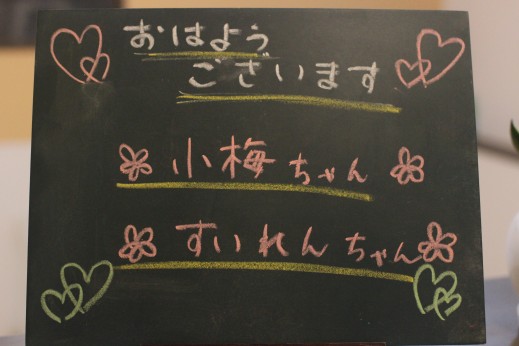 おはよう
ございます
小梅ちゃん
すいれんちゃん